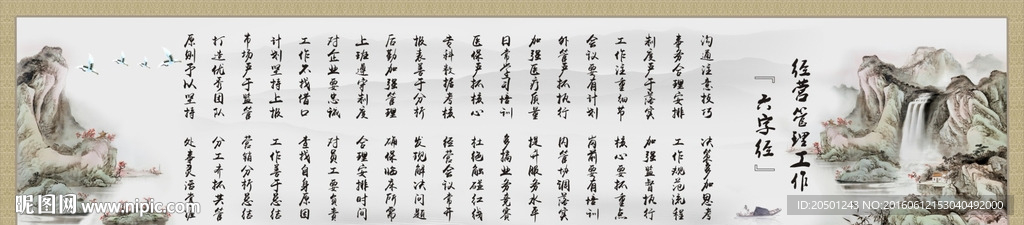 经营管理工作
『六字经』
沟通注意技巧 决策多加思考
事务合理安排 工作规范流程
制度严于落实 加强监督执行
工作注重细节 核心要抓重点
会议要有计划 岗前要有培训
外管严抓执行 内管协调落实
加强医疗质量 提升服务水平
日常学习培训 多搞业务竞赛
医保严抓核心 杜绝触碰红线
专科数据考核 经营会议常开
报表善于分析 发现解决问题
后勤加强管理 确保临床所需
上班遵守制度 合理安排时间
对企业要忠诚 对员工要负责
工作不找借口 查找自身原因
计划坚持上报 工作善于总结
市场严于监管 营销分析总结
打造优秀团队 分工齐抓共管
原则予以坚持 处事灵活
昵图网 www.nipic.com
ID:20501243 NO:20160612153040492000